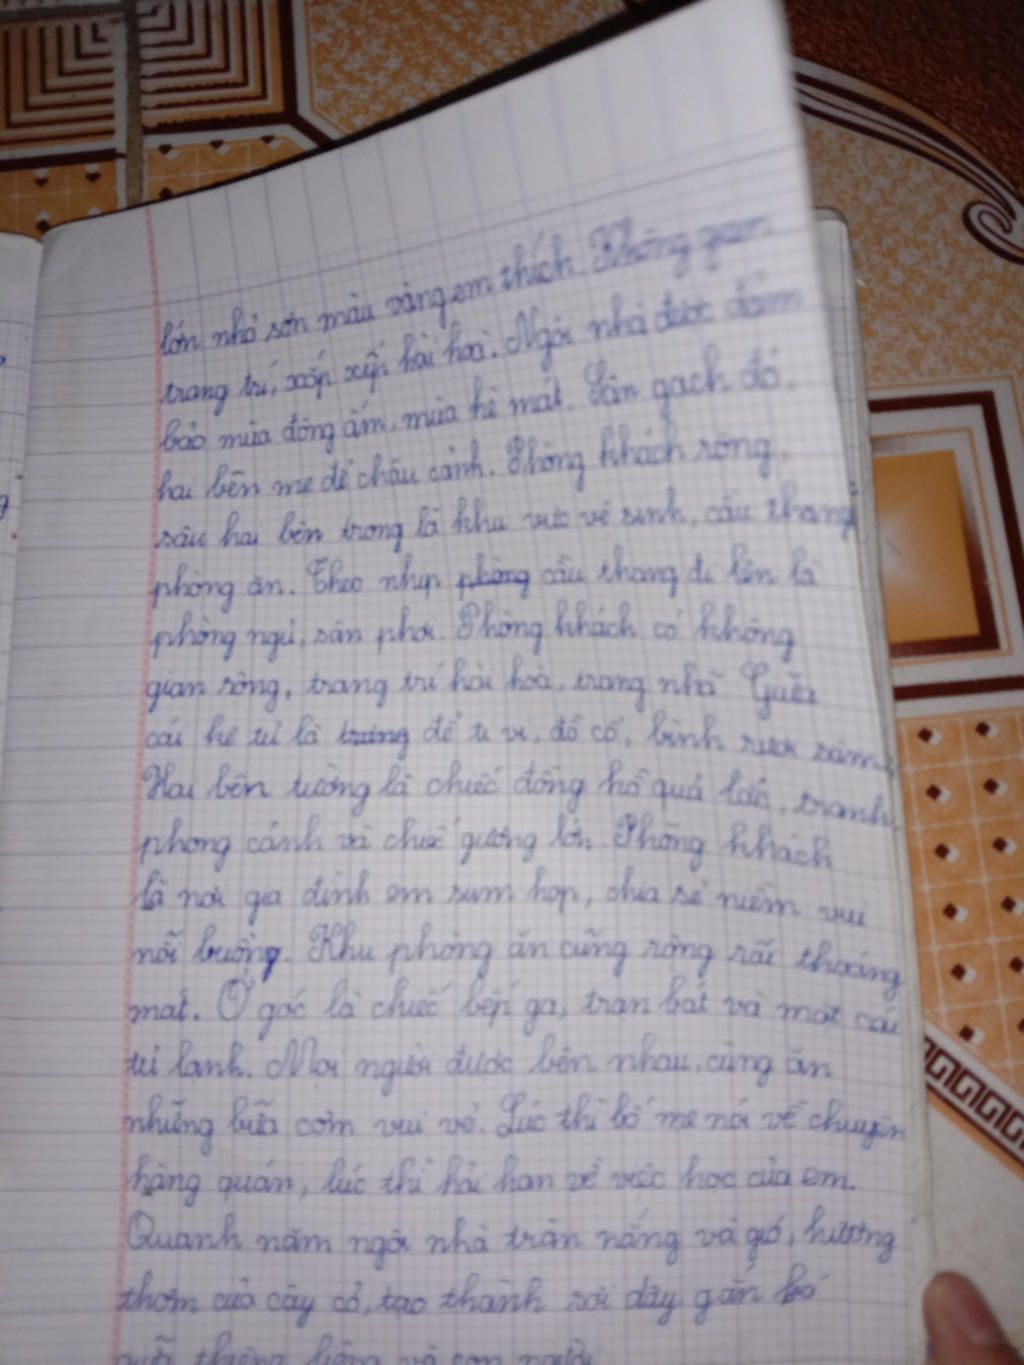 lớn nhỏ sơn màu vàng em thích. Không gian
trang trí, xắp xếp hài hoà. Ngôi nhà được đảm
bảo mùa đông ấm, mùa hè mát. Sân gạch đỏ,
hai bên mẹ để chậu cảnh. Phòng khách rộng,
sâu hai bên trong là khu vực vệ sinh, cầu thang
phòng ăn. Theo nhịp phòng cầu thang đi lên là
phòng ngủ, sân phơi. Phòng khách có không
gian rộng, trang trí hài hoà, trang nhã
cái kệ tủ là để ti vi, đồ cổ, bình rượu sâm,
Hai bên tường là chiếc đồng hồ quả lắc, tranh
phong cảnh và chiếc gương lớn. Phòng khách
là nơi gia đình em sum họp, chia sẻ niềm vui
nỗi buồn. Khu phòng ăn cũng rộng rãi thoáng
mát. Ở góc là chiếc bếp ga, trạn bát và một cái
tủ lạnh. Mọi người được bên nhau, cùng ăn
những bữa cơm vui vẻ. Lúc thì bố mẹ nói về chuyện
hàng quán, lúc thì hỏi han về việc học của em.
Quanh năm ngôi nhà tràn nắng và gió, hương
thơm của cây cỏ, tạo thành sợi dây gắn bó